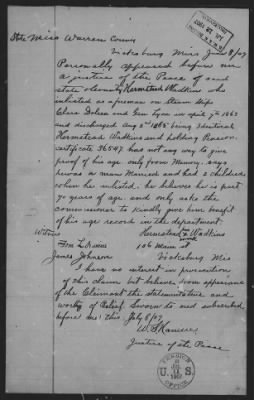 State Miss Warren County
Vicksburg Miss June 8/07
Personally appeared before me
a justice of the Peace of said
state & county Hemstead Watkins who
enlisted as a fireman on Steam Ship
Clara Dolsen and Gen Lyon in april 7th 1863
and discharged Aug 3rd 1865 being Identical
Hemstead Watkins and holding Pension
certificate 36547 has not any way to give
proof of his age only from Memory. says
he was a man Married and had 2 children
when he enlisted. he believes he is past
70 years of age. and only asks the
commissioner to kindly give him benefit
of his age record in the department
Witness Hemstead Watkins
106 main st
James Johnson Vicksburg Miss
I have no interest in prosecution
of this claim but believe from appearance
of the Claimant the statement true and
worthy of belief. Sworn to and subscribed
before me this July 8/07
Justice of the Peace
PENSION
U. S.
OFFICE